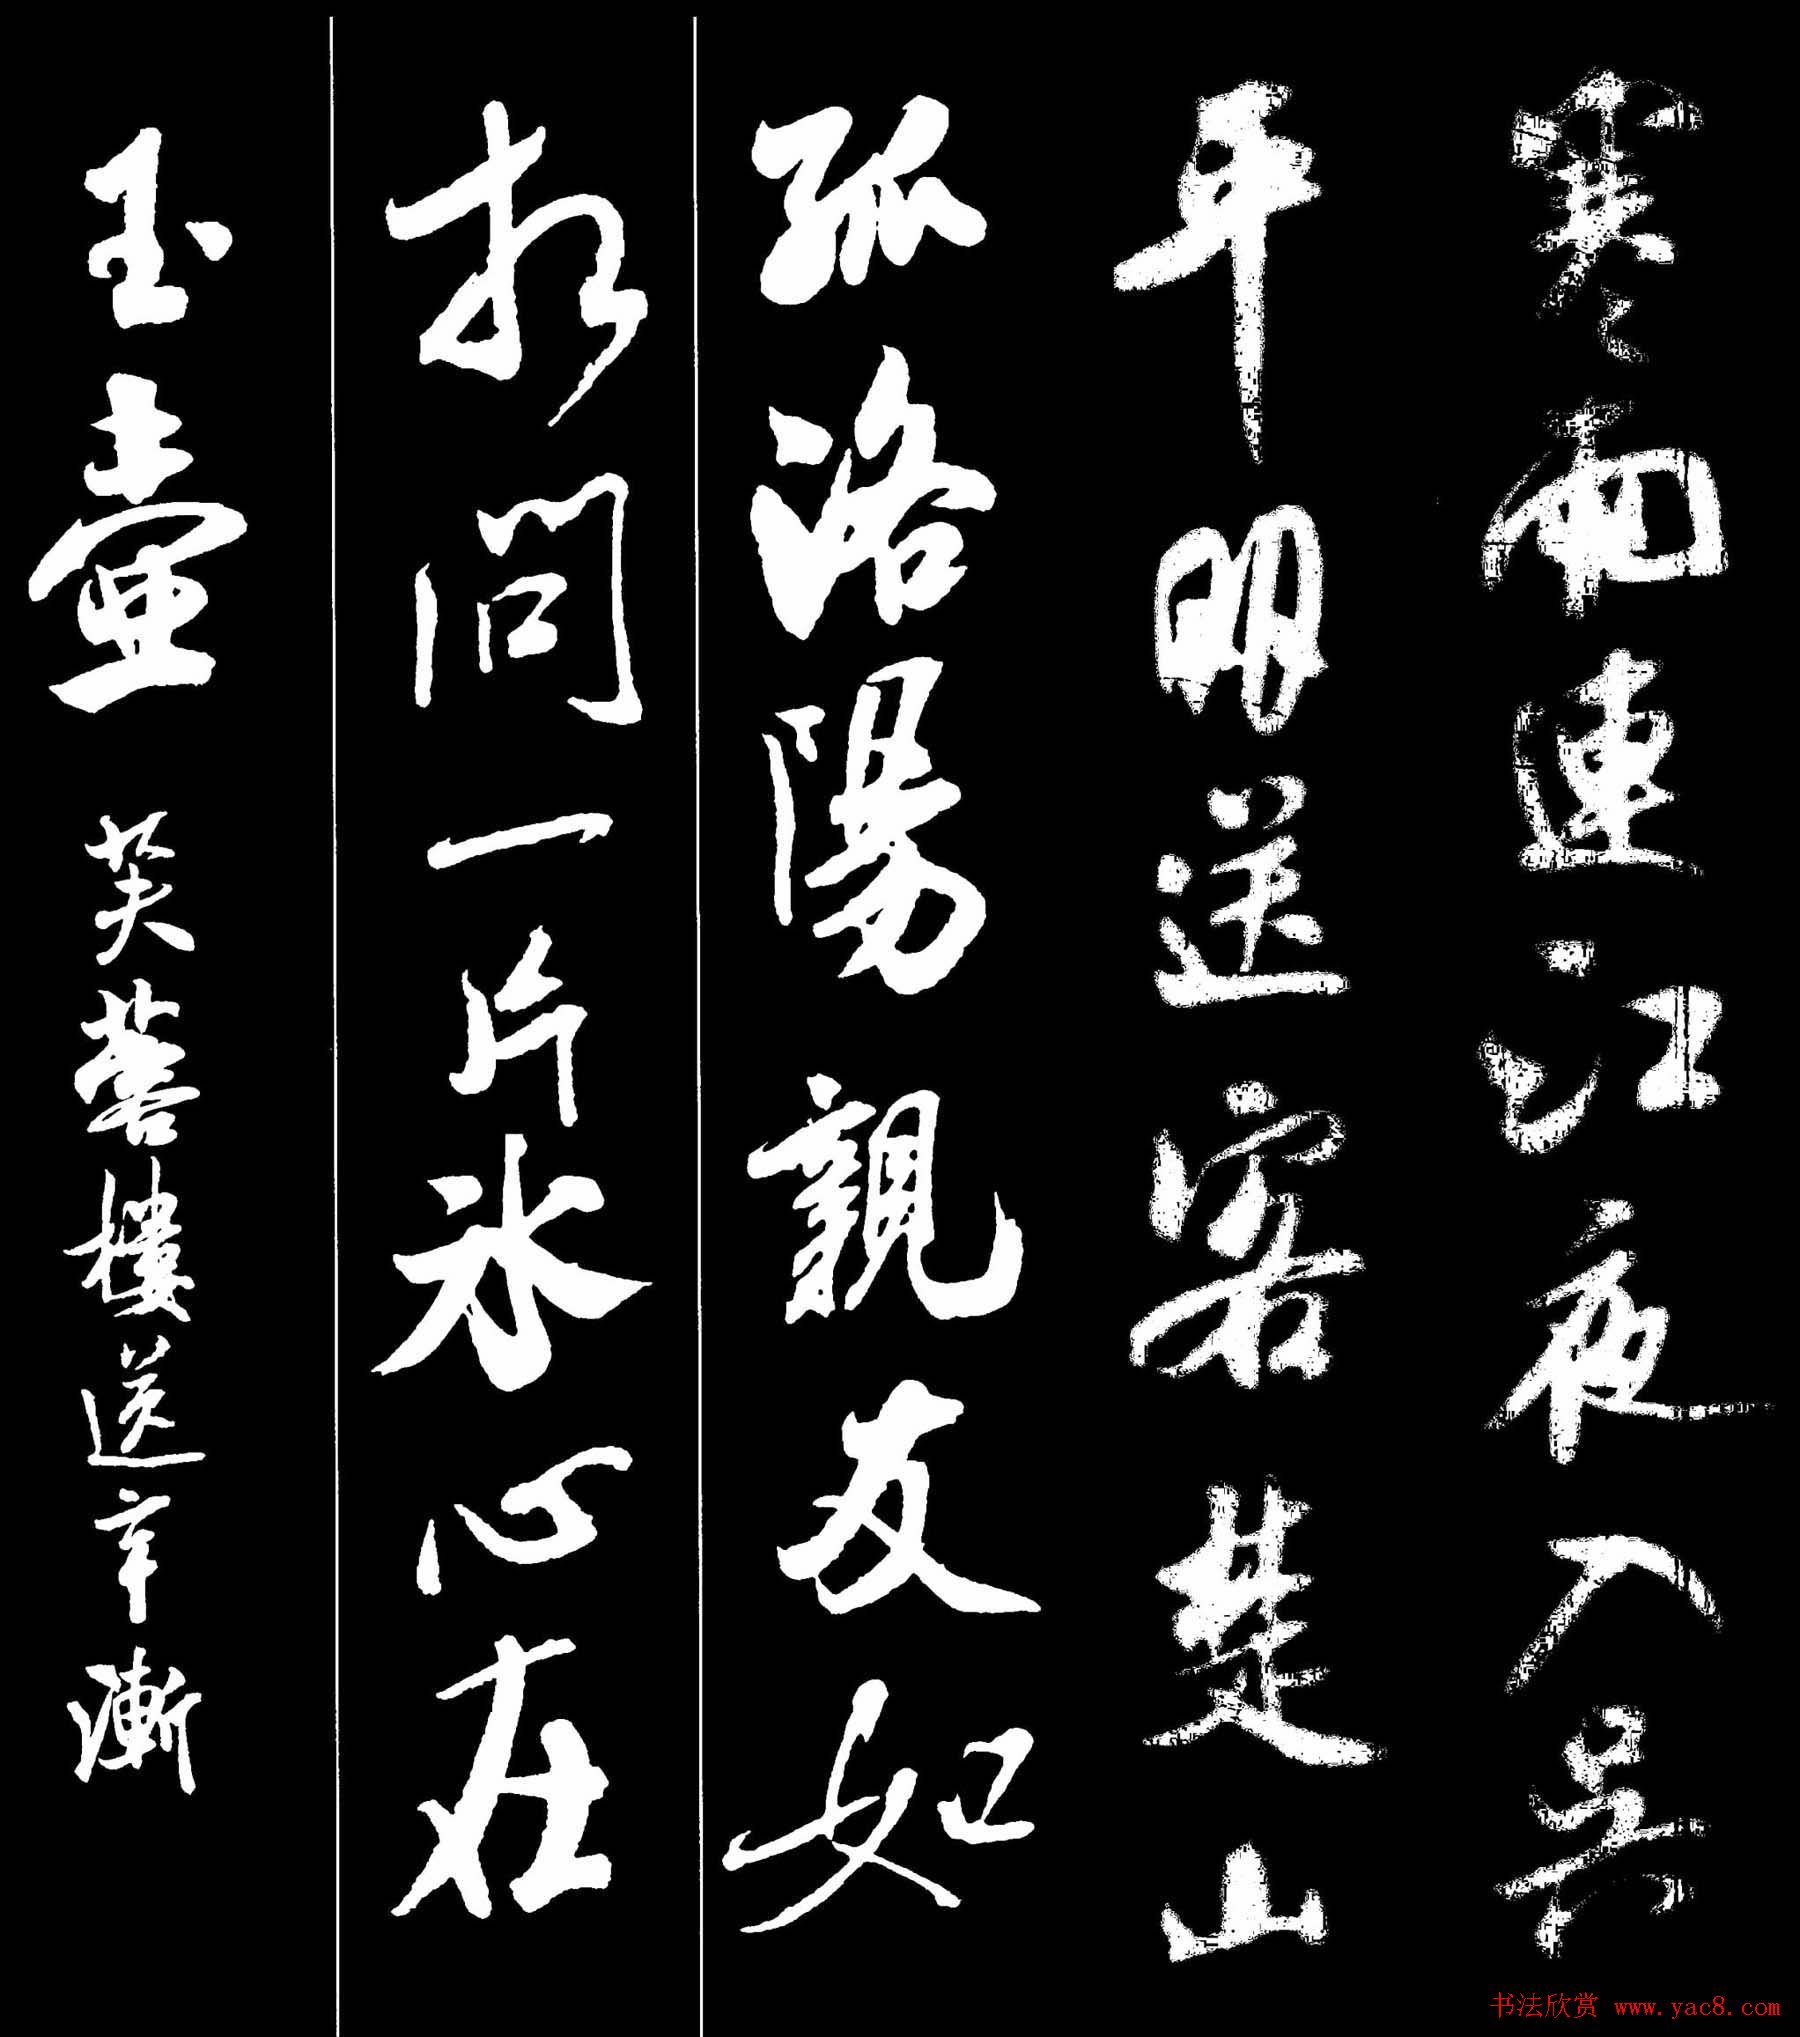 寒雨連江夜入吴
平明送客楚山
孤洛陽親友如
相問一片冰心在
玉壺 芙蓉樓送辛漸
书法欣赏 www.yac8.com